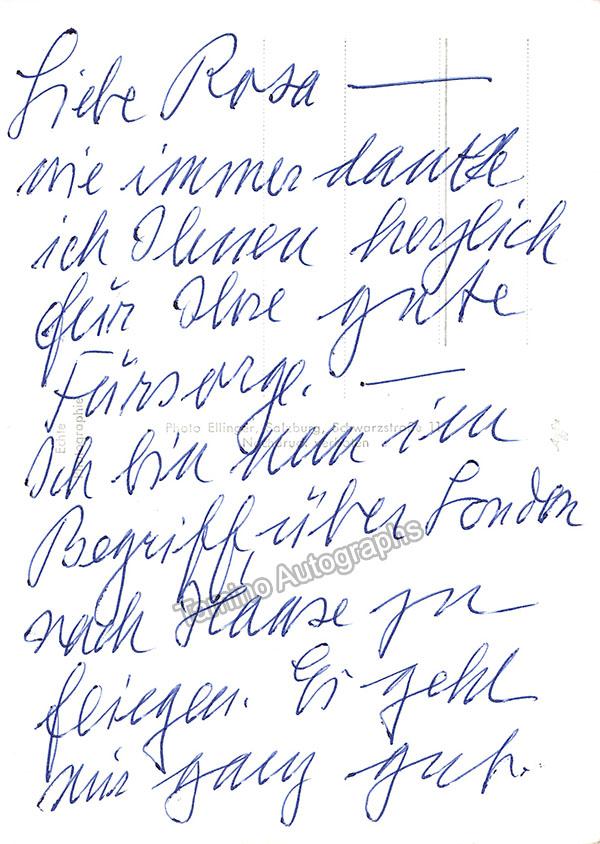 Liebe Rosa —
wie immer dankte
ich Ihnen herzlich
für Ihre gute
Fürsorge. —
Echte
Photographie
Photo Ellinger, Salzburg, Schwarzstraße
Nachdruck verboten
Ich bin nun im
Begriff über London
Tamino Autographs
nach Hause zu
fliegen. Es geht
mir ganz gut.